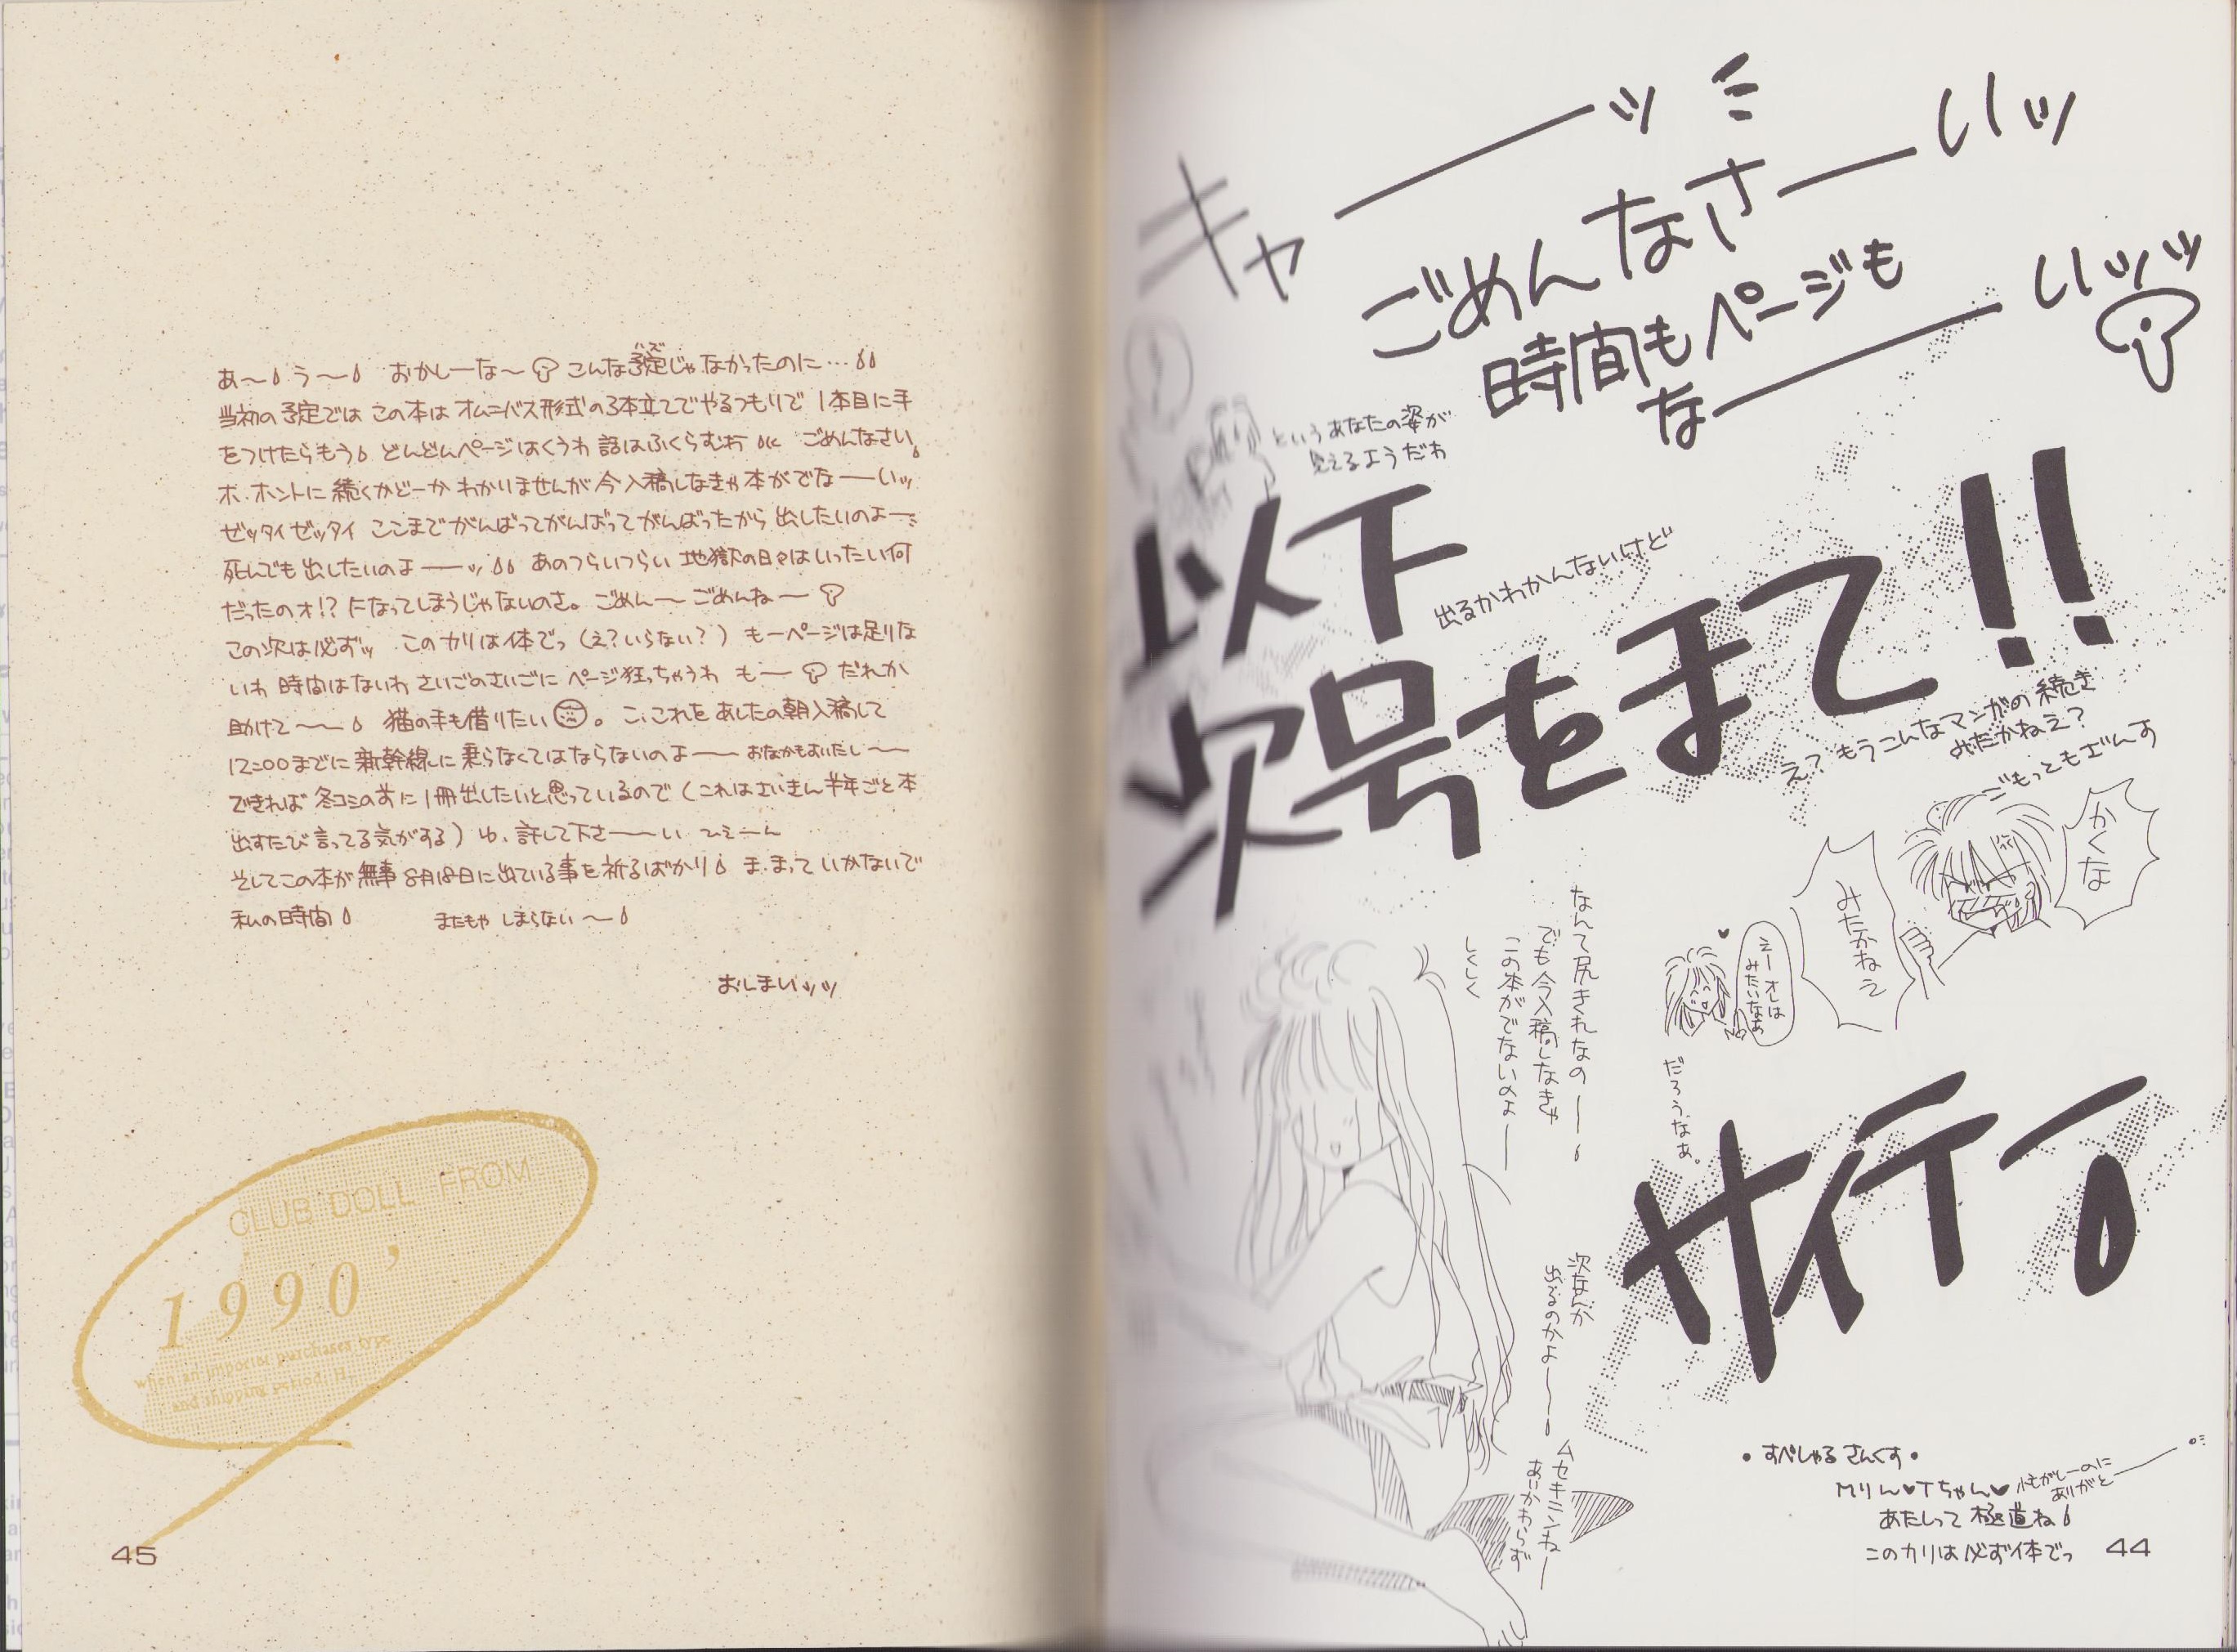 キャーーーッ
ごめんなさーいッ
時間もページも
なーーーいッッ
というあなたの姿が
見えるようだわ
以下
出るかわかんないけど
次号をまて!!
え？もうこんなマンガの続き
みたかねえ？
ごもっともざんす
かくな
みたかねえ
えーオレは
みたいなあ
だろうなぁ。
なんて尻きれなのー
でも今入稿しなきゃ
この本がでないのよー
しくしく
サイテー
次なんか
出るのかよーー
ムセキニンねー
あいかわらず
・すぺしゃるさんくす・
Mりん♥Tちゃん♥
ありがとーー
あたしって極道ね
このカリは必ず体でっ
44
あ〜う〜 おかしーな〜 こんな予定じゃなかったのに…
ハズ
当初の予定では この本は オムニバス形式の3本立てでやるつもりで 1本目に手
をつけたらもう どんどんページはくうわ 話はふくらむわ ごめんなさい
ホ、ホントに 続くかどーか わかりませんが 今入稿しなきゃ本がでなーーいッ
ゼッタイゼッタイ ここまでがんばってがんばってがんばったから 出したいのよー
死んでも出したいのよーーッ あのつらいつらい 地獄の日々はいったい何
だったのォ!? になってしまうじゃないのさ。ごめん〜 ごめんね〜
この次は必ずッ このカリは体でっ（え？いらない？）もーページは足りな
いわ 時間はないわ さいごのさいごに ページ狂っちゃうわ もー だれか
助けて〜〜 猫の手も借りたい。こ、これを あしたの朝入稿して
12:00までに 新幹線に乗らなくてはならないのよーー おなかもおいたし〜
できれば 冬コミの前に1冊出したいと思っているので（これはさいきん半年ごと本
出すたび言ってる気がする）ゆ、許して下さーーい ひえーん
そしてこの本が 無事8月18日に出ている事を祈るばかり ま、まって いかないで
私の時間 またもや しまらない〜
おしまいッッ
CLUB DOLL FROM
1990'
when an importer purchases type
and shipping period. H.
45